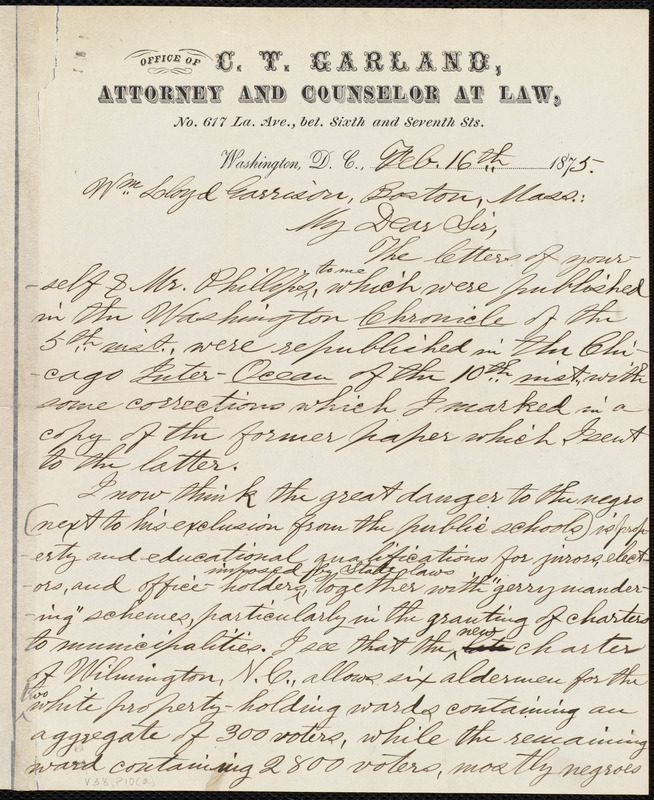 OFFICE OF C. T. GARLAND,
ATTORNEY AND COUNSELOR AT LAW,
No. 617 La. Ave., bet. Sixth and Seventh Sts.
Washington, D. C., Feb. 16th 1875.
Wm Lloyd Garrison, Boston, Mass.:
My Dear Sir,
The letters of your-
-self & Mr. Phillips, to me, which were published
in the Washington Chronicle of the
5th inst., were republished in the Chi-
-cago Inter-Ocean of the 10th inst, with
some corrections which I marked in a
copy of the former paper which I sent
to the latter.
I now think the great danger to the negro
(next to his exclusion from the public schools) is prop-
-erty and educational qualifications for jurors, elect-
-ors, and office-holders, imposed by State laws together with "gerrymander-
-ing" schemes, particularly in the granting of charters
to municipalities. I see that the new charter
of Wilmington, N.C., allows six aldermen for the
two white property-holding wards containing an
aggregate of 300 voters, while the remaining
ward containing 2800 voters, mostly negroes
V 38, P10(a)